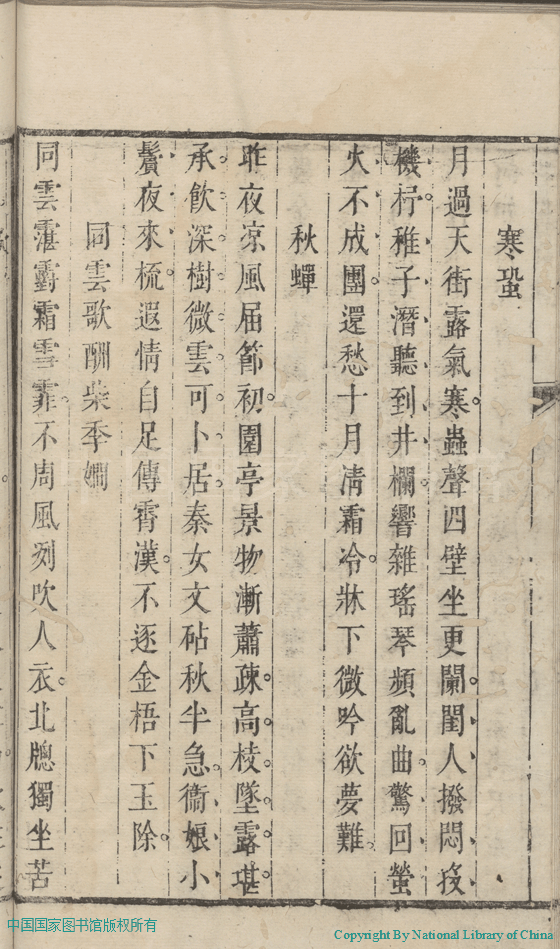 寒蛩
月過天街露氣寒蟲聲四壁坐更闌閨人撥悶投
機杼稚子潛聽到井欄響雜瑤琴頻亂曲驚回螢
火不成團還愁十月淸霜冷牀下微吟欲夢難
秋蟬
昨夜凉風届節初園亭景物漸蕭疎高枝墜露堪
承飲深樹微雲可卜居秦女文砧秋半急衞娘小
鬢夜來梳遐情自足傳霄漢不逐金梧下玉除
同雲歌酬柴季嫺
同雲霮䨴霜雪霏不周風冽吹人衣北牕獨坐苦
中国国家图书馆版权所有
Copyright By National Library of China